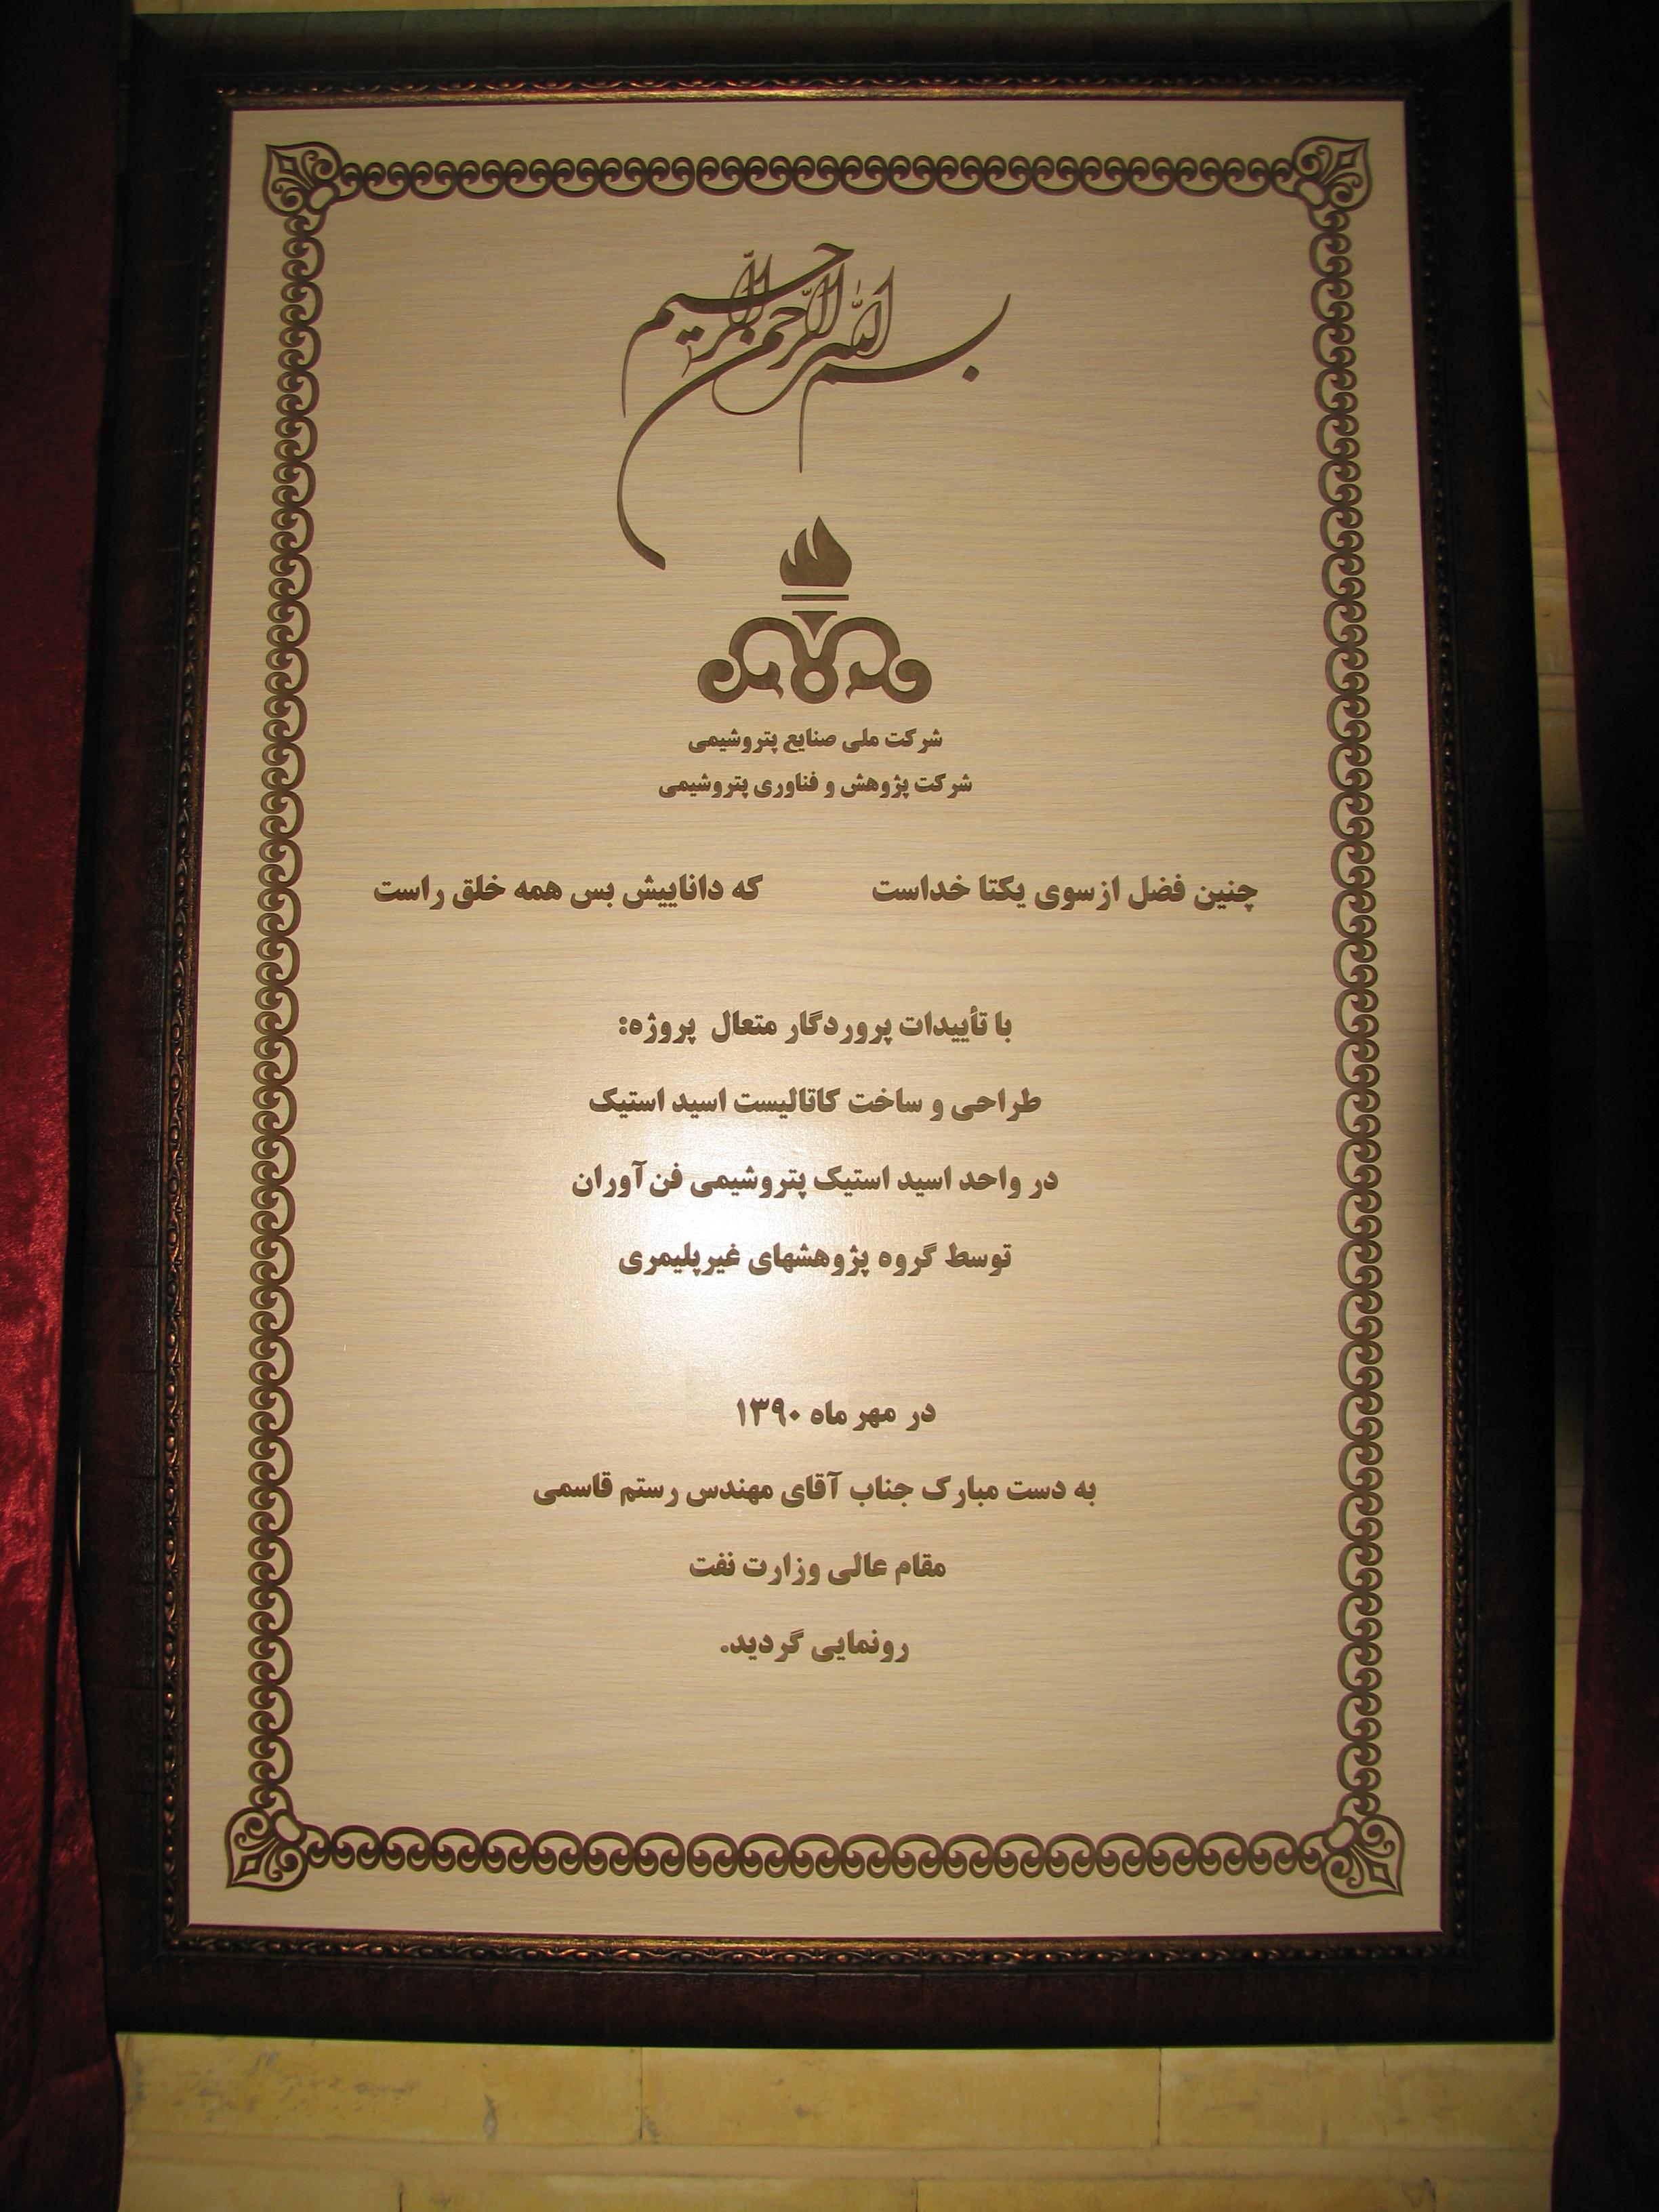 بسم الله الرحمن الرحیم
شرکت ملی صنایع پتروشیمی
شرکت پژوهش و فناوری پتروشیمی
چنین فضل از سوی یکتا خداست که داناییش بس همه خلق راست
با تأییدات پروردگار متعال پروژه:
طراحی و ساخت کاتالیست اسید استیک
در واحد اسید استیک پتروشیمی فن آوران
توسط گروه پژوهشهای غیرپلیمری
در مهر ماه ۱۳۹۰
به دست مبارک جناب آقای مهندس رستم قاسمی
مقام عالی وزارت نفت
رونمایی گردید.